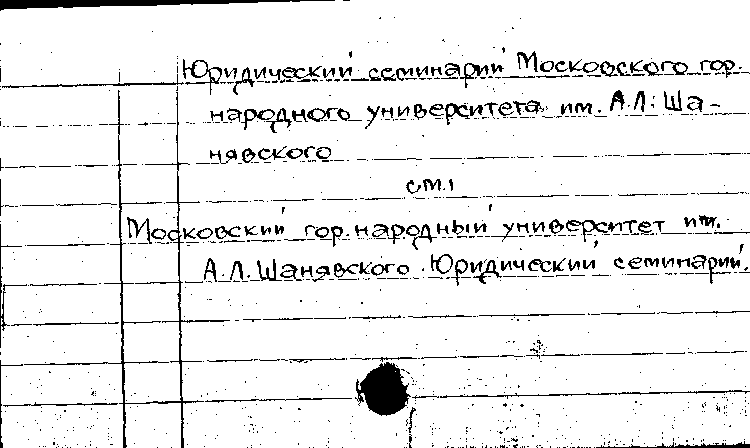 Юридический семинарий Московского гор.
народного университета им. А.Л. Ша-
нявского
см.
Московский гор. народный университет им.
А.Л. Шанявского. Юридический семинарий.